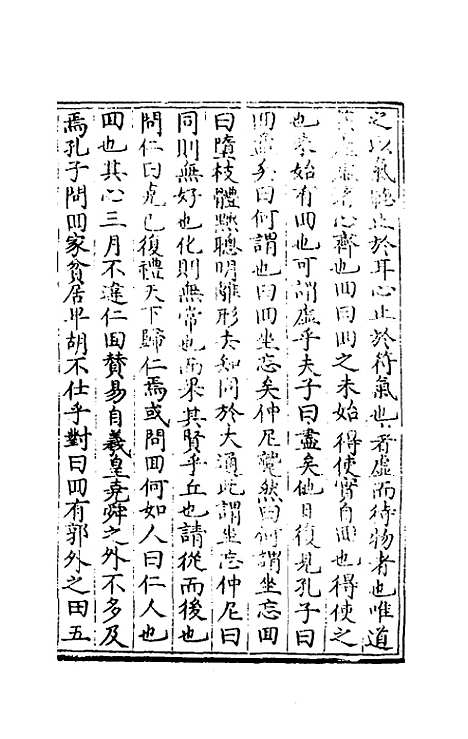 之以氣聽止於耳心止於符氣也者虛而待物者也唯道
集虛虛者心齋也回曰回之未始得使實自回也得使之
也未始有回也可謂虛乎夫子曰盡矣他日復見孔子曰
回益矣曰何謂也曰回坐忘矣仲尼蹵然曰何謂坐忘回
曰墮枝體黜聰明離形去知同於大通此謂坐忘仲尼曰
同則無好也化則無常也而果其賢乎丘也請從而後也
問仁曰克己復禮天下歸仁焉或問回何如人曰仁人也
回也其心三月不違仁因贊易自羲皇堯舜之外不多及
焉孔子問回家貧居卑胡不仕乎對曰回有郭外之田五